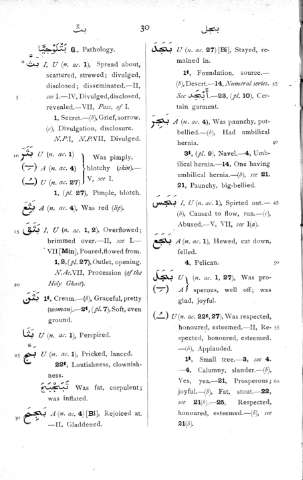 بثّ
30
بجل
G, Pathology.
بثّ I, U (n. ac. 1), Spread about,
scattered, strewed; divulged,
disclosed; disseminated.—II,
see I.—IV, Divulged, disclosed,
revealed.—VII, Pass. of I.
1, Secret.—(b), Grief, sorrow.
(c), Divulgation, disclosure.
N.P.I, N.P.VII, Divulged.
بثر U (n. ac. 1)
A (n. ac. 4)
U (n. ac. 27)
Was pimply.
blotchy (skin).—
V, see I.
1, (pl. 27), Pimple, blotch.
بثع A (n. ac. 4), Was red (lip).
بثق I, U (n. ac. 1, 2), Overflowed;
brimmed over.—II, see I.—
VII [Min], Poured, flowed from.
1, 2, (pl. 27), Outlet, opening.
N.Ac.VII, Procession (of the
Holy Ghost).
بثن 1ᵗ, Cream.—(b), Graceful, pretty
(woman).—2ᵗ, (pl. 7), Soft, even
ground.
بثا U (n. ac. 1), Perspired.
بج U (n. ac. 1), Pricked, lanced.
22ᵗ, Lentishness, clownish-
ness.
Was fat, corpulent;
was inflated.
بجح A (n. ac. 4) [Bi], Rejoiced at.
—II, Gladdened.
بجد U (n. ac. 27) [Bi], Stayed, re-
mained in.
1ᵗ, Foundation, source.—
(b), Desert.—14, Numeral series.
See أبجد.—23, (pl. 10), Cer-
tain garment.
بجر A (n. ac. 4), Was paunchy, pot-
bellied.—(b), Had umbilical
hernia.
3ᵗ, (pl. 9), Navel.—4, Umb-
ilical hernia.—14, One having
umbilical hernia.—(b), see 21.
21, Paunchy, big-bellied.
بجس I, U (n. ac. 1), Spirted out.—
(b), Caused to flow, run.—(c),
Abused.—V, VII, see I(a).
بجع A (n. ac. 1), Hewed, cut down,
felled.
4, Pelican.
بجل U (n. ac. 1, 27), Was pro-
A
sperous, well off; was
glad, joyful.
U (n. ac. 22ᵗ, 27), Was respected,
honoured, esteemed.—II, Re-
spected, honoured, esteemed.
—(b), Applauded.
1ᵗ, Small tree.—3, see 4.
—4, Calumny, slander.—(b),
Yes, yea.—21, Prosperous;
joyful.—(b), Fat, stout.—22,
see 21(b).—25, Respected,
honoured, esteemed.—(b), see
21(b).